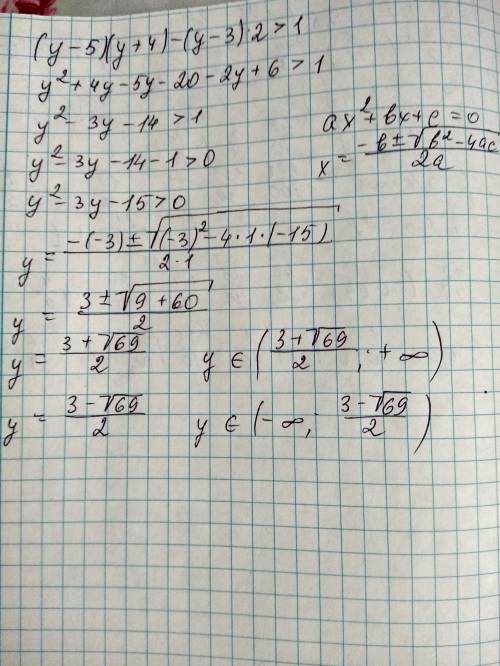 (y-5)(y+4)-(y-3)·2>1
y²+4y-5y-20-2y+6>1
y²-3y-14>1
y²-3y-14-1>0
y²-3y-15>0
ax²+bx+c=0
x=(-b±√(b²-4ac))/(2a)
y=(-(-3)±√((-3)²-4·1·(-15)))/(2·1)
y=(3±√(9+60))/2
y=(3+√69)/2   y∈((3+√69)/2;+∞)
y=(3-√69)/2   y∈(-∞,(3-√69)/2)